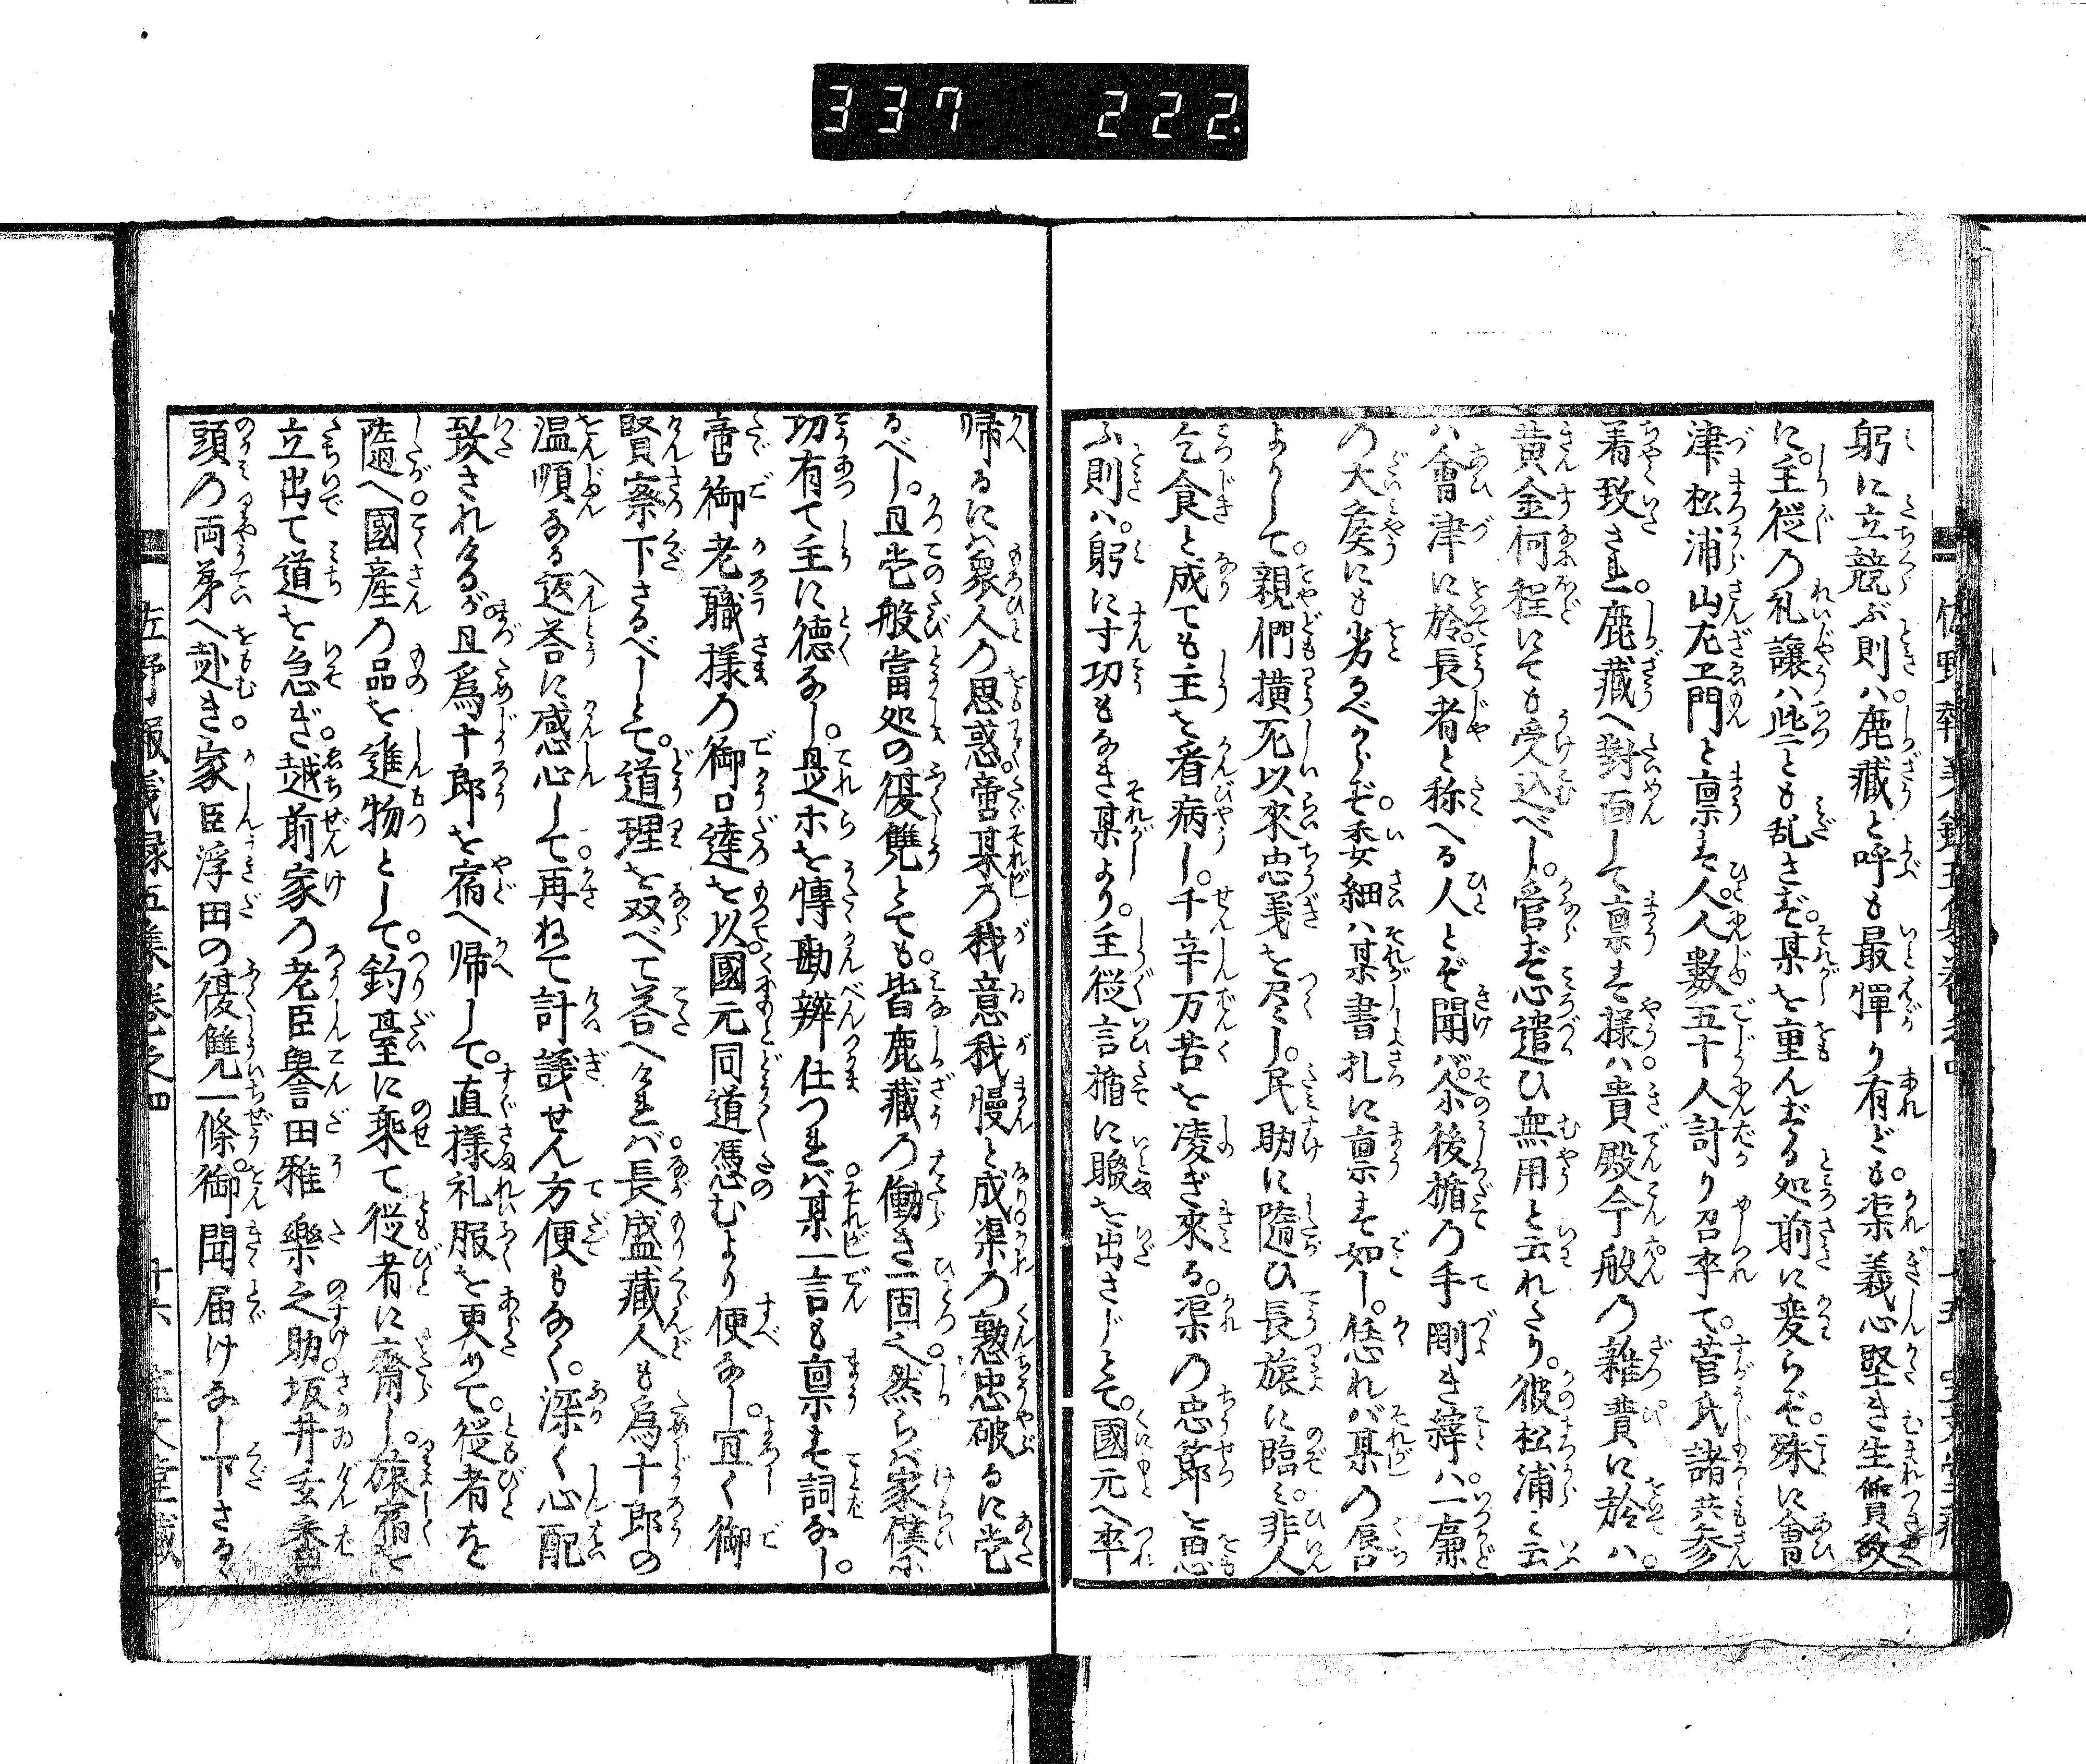 337 222
躬に立競ぶ則ハ。鹿藏と呼も最憚り有ども。渠義心堅き生質故
に。主従の礼讓ハ些とも乱さず。某を重んずる処前に変らず。殊に會
津松浦山左エ門と禀す人。人數五十人計り召卒て。菅氏諸共参
着致され。鹿藏へ對面して禀す様ハ。貴殿今般の雜費に於ハ。
黄金何程にても受込べし。必ず心遣ひ無用と云れたり。彼松浦と云
ハ會津に於。長者と称へる人とぞ聞バ。其後楯の手剛き縡ハ。一廉
の大矦にも劣るべからず。委細ハ某書札に禀す如し。恁れバ某の唇
よりして。親們横死以來忠義を尽し。民助に隨ひ長旅に臨ミ。非人
乞食と成ても主を看病し。千辛万苦を凌ぎ來る。渠の忠節を思
ふ則ハ。躬に寸功もなき某より。主従言楯に賜を出さじとて。國元へ卒
帰るにハ衆人の思惑。啻某の我意我慢と成。渠の懃忠破るに當
るべし。且壱般當処の復讐とても。皆鹿藏の働き一箇之。然らバ家僕に
功有て主に徳なし。是ホを慱勘辨仕つれバ。某一言も禀す詞なし。
啻御老職様の御口達を以。國元同道憑むより便なし。宜く御
賢察下さるべしとて。道理を双べて答へけれバ。長盛藏人も爲十郎の
温順なる返荅に感心して。再ねて計議せん方便もなく。深く心配
致されけるが。且爲十郎を宿へ帰して。直様礼服を更めて。従者を
隨へ國産の品を進物として。釣䑓に乘て従者に齎し。旅宿を
立出て道を急ぎ。越前家の老臣譽田雅樂之助。坂井玄蕃
頭の両弟へ赴き。家臣浮田の復讐一條。御聞届けなし下さるゝ
佐野報義録五集巻之四 十五 文堂藏
佐野報義録五集巻之四 十六 文堂藏